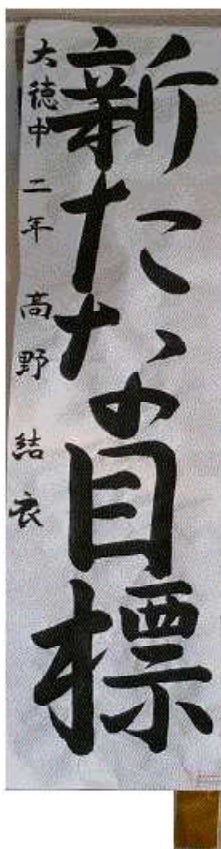 新たな目標
大徳中 二年 高野 結衣